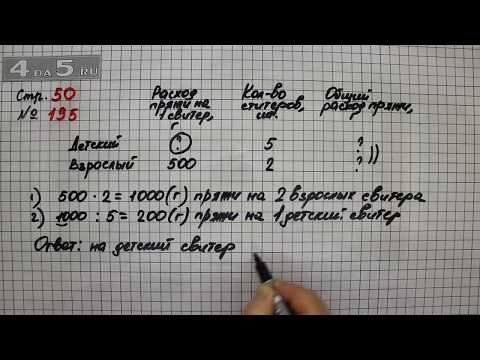 4 DA 5.RU
Стр. 50
№ 195
Расход пряжи на 1 свитер, г
Кол-во ститеров, шт.
Общий расход пряжи, г
Детский ? 5 ?
Взрослый 500 2 ?
1) 500 · 2 = 1000 (г) пряжи на 2 взрослых свитера
2) 1000 : 5 = 200 (г) пряжи на 1 детский свитер
Ответ: на детский свитер